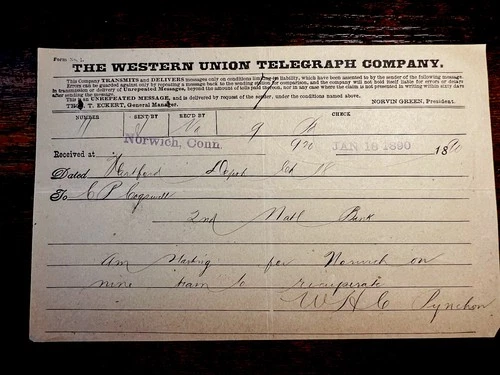 Form No. 1.
THE WESTERN UNION TELEGRAPH COMPANY.
This Company TRANSMITS and DELIVERS messages only on conditions limiting its liability, which have been assented to by the sender of the following message.
Errors can be guarded against only by repeating a message back to the sending station for comparison, and the company will not hold itself liable for errors or delays
in transmission or delivery of Unrepeated Messages, beyond the amount of tolls paid thereon, nor in any case where the claim is not presented in writing within sixty days
after sending the message.
This is an UNREPEATED MESSAGE, and is delivered by request of the sender, under the conditions named above.
THOS. T. ECKERT, General Manager. NORVIN GREEN, President.
NUMBER SENT BY REC'D BY CHECK
9 Pd
Norwich, Conn. 920 JAN 18 1890 1890
Received at
Dated Hartford Depot Ct 18
To C P Cogswell
2nd Natl Bank
Am starting for Norwich on
nine train to recuperate
W H C Pynchon